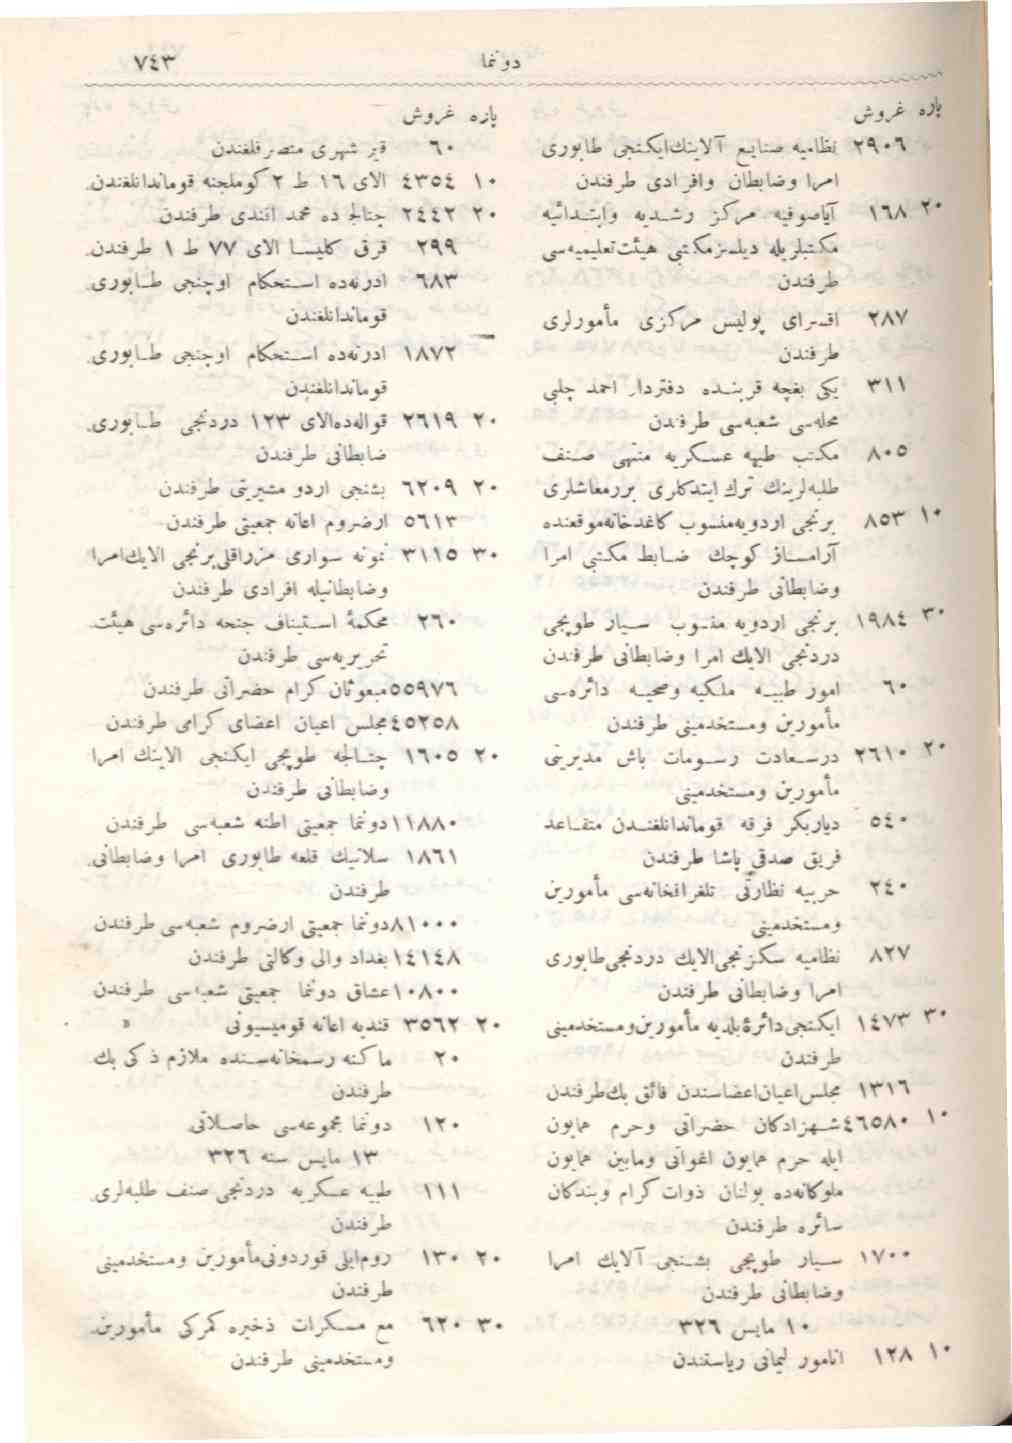 دونما ٧٤٣
پاره غروش
٢٩٠٦ نظامیه صنایع آلاینك ایكنجی طابوری
امرا وضابطان وافرادی طرفندن
٢٠ ١٦٨ آیاصوفیه مركز رشدیه وابتدائیه
مكتبلریله دیلسز مكتبی هیئت تعلیمیه‌سی
طرفندن
٢٨٧ اقسرای پولیس مركزی مأمورلری
طرفندن
٣١١ یكی بغچه قربنده دفتردار احمد چلبی
محله‌سی شعبه‌سی طرفندن
٨٠٥ مكتب طبیه عسكریه منتهی صنف
طلبه‌لرینك ترك ایتدكلری بررمعاشلری
١٠ ٨٥٣ برنجی اردویه منسوب كاغدخانه موقعنده
آرامساز كوچك ضابط مكتبی امرا
وضابطانی طرفندن
٣٠ ١٩٨٤ برنجی اردویه منسوب سیار طوپجی
دردنجی الایك امرا وضابطانی طرفندن
٦٠ امور طبیه ملكیه وصحیه دائره‌سی
مأمورین ومستخدمینی طرفندن
٢٠ ٢٦١٠ درسعادت رسومات باش مدیریتی
مأمورین ومستخدمینی
٥٤٠ دیاربكر فرقه قوماندانلغندن متقاعد
فریق صدقی پاشا طرفندن
٢٤٠ حربیه نظارتی تلغرافخانه‌سی مأمورین
ومستخدمینی
٨٢٧ نظامیه سكزنجی الایك دردنجی طابوری
امرا وضابطانی طرفندن
٣٠ ١٤٧٣ ایكنجی دائرۀ بلدیه مأمورین ومستخدمینی
طرفندن
١٣١٦ مجلس اعیان اعضاسندن فائق بك طرفندن
١٠ ٤٦٥٨٠ شهزادكان حضراتی وحرم همایون
ایله حرم همایون اغواتی ومابین همایون
ملوكانه‌ده بولنان ذوات كرام وبندكان
سائره طرفندن
١٧٠٠ سیار طوپجی بشنجی آلایك امرا
وضابطانی طرفندن
١٠ مایس ٣٢٦
١٠ ١٢٨ انامور لیمانی ریاستندن
پاره غروش
٦٠ قیر شهری متصرفلغندن
١٠ ٤٣٥٤ الای ١٦ ط ٢ كوملجنه قوماندانلغندن
٢٠ ٢٤٤٢ چتالجا ده محمد افندی طرفندن
٢٩٩ قرق كلیسا الای ٧٧ ط ١ طرفندن
٦٨٣ ادرنه‌ده استحكام اوچنجی طابوری
قوماندانلغندن
١٨٧٢ ادرنه‌ده استحكام اوچنجی طابوری
قوماندانلغندن
٢٠ ٢٦١٩ قواله‌ده الای ١٢٣ دردنجی طابوری
ضابطانی طرفندن
٢٠ ٦٢٠٩ بشنجی اردو مشیریتی طرفندن
٥٦١٣ ارضروم اعانه جمعیتی طرفندن
٣٠ ٣١١٥ نمونه سواری مزراقلی برنجی الایك امرا
وضابطانیله افرادی طرفندن
٢٦٠ محكمۀ استیناف جنحه دائره‌سی هیئت
تحریریه‌سی طرفندن
٥٥٩٧٦ مبعوثان كرام حضراتی طرفندن
٤٥٢٥٨ مجلس اعیان اعضای كرامی طرفندن
٢٠ ١٦٠٥ چتالجه طوپجی ایكنجی الاینك امرا
وضابطانی طرفندن
١١٨٨٠ دونما جمعیتی اطنه شعبه‌سی طرفندن
١٨٦١ سلانیك قلعه طابوری امرا وضابطانی
طرفندن
٨١٠٠٠ دونما جمعیتی ارضروم شعبه‌سی طرفندن
١٤١٤٨ بغداد والی وكالتی طرفندن
١٠٨٠٠ عشاق دونما جمعیتی شعبه‌سی طرفندن
٢٠ ٣٥٦٢ قندیه اعانه قومیسیونی »
٢٠ ماكنه رسمخانه‌سنده ملازم ذكی بك
طرفندن
١٢٠ دونما مجموعه‌سی حاصلاتی
١٣ مایس سنه ٣٢٦
١١١ طبیه عسكریه دردنجی صنف طلبه‌لری
طرفندن
٢٠ ١٣٠ روم‌ایلی قوردونی مأمورین ومستخدمینی
طرفندن
٣٠ ٦٢٠ مع مسكرات ذخیره كمركی مأمورین
ومستخدمینی طرفندن